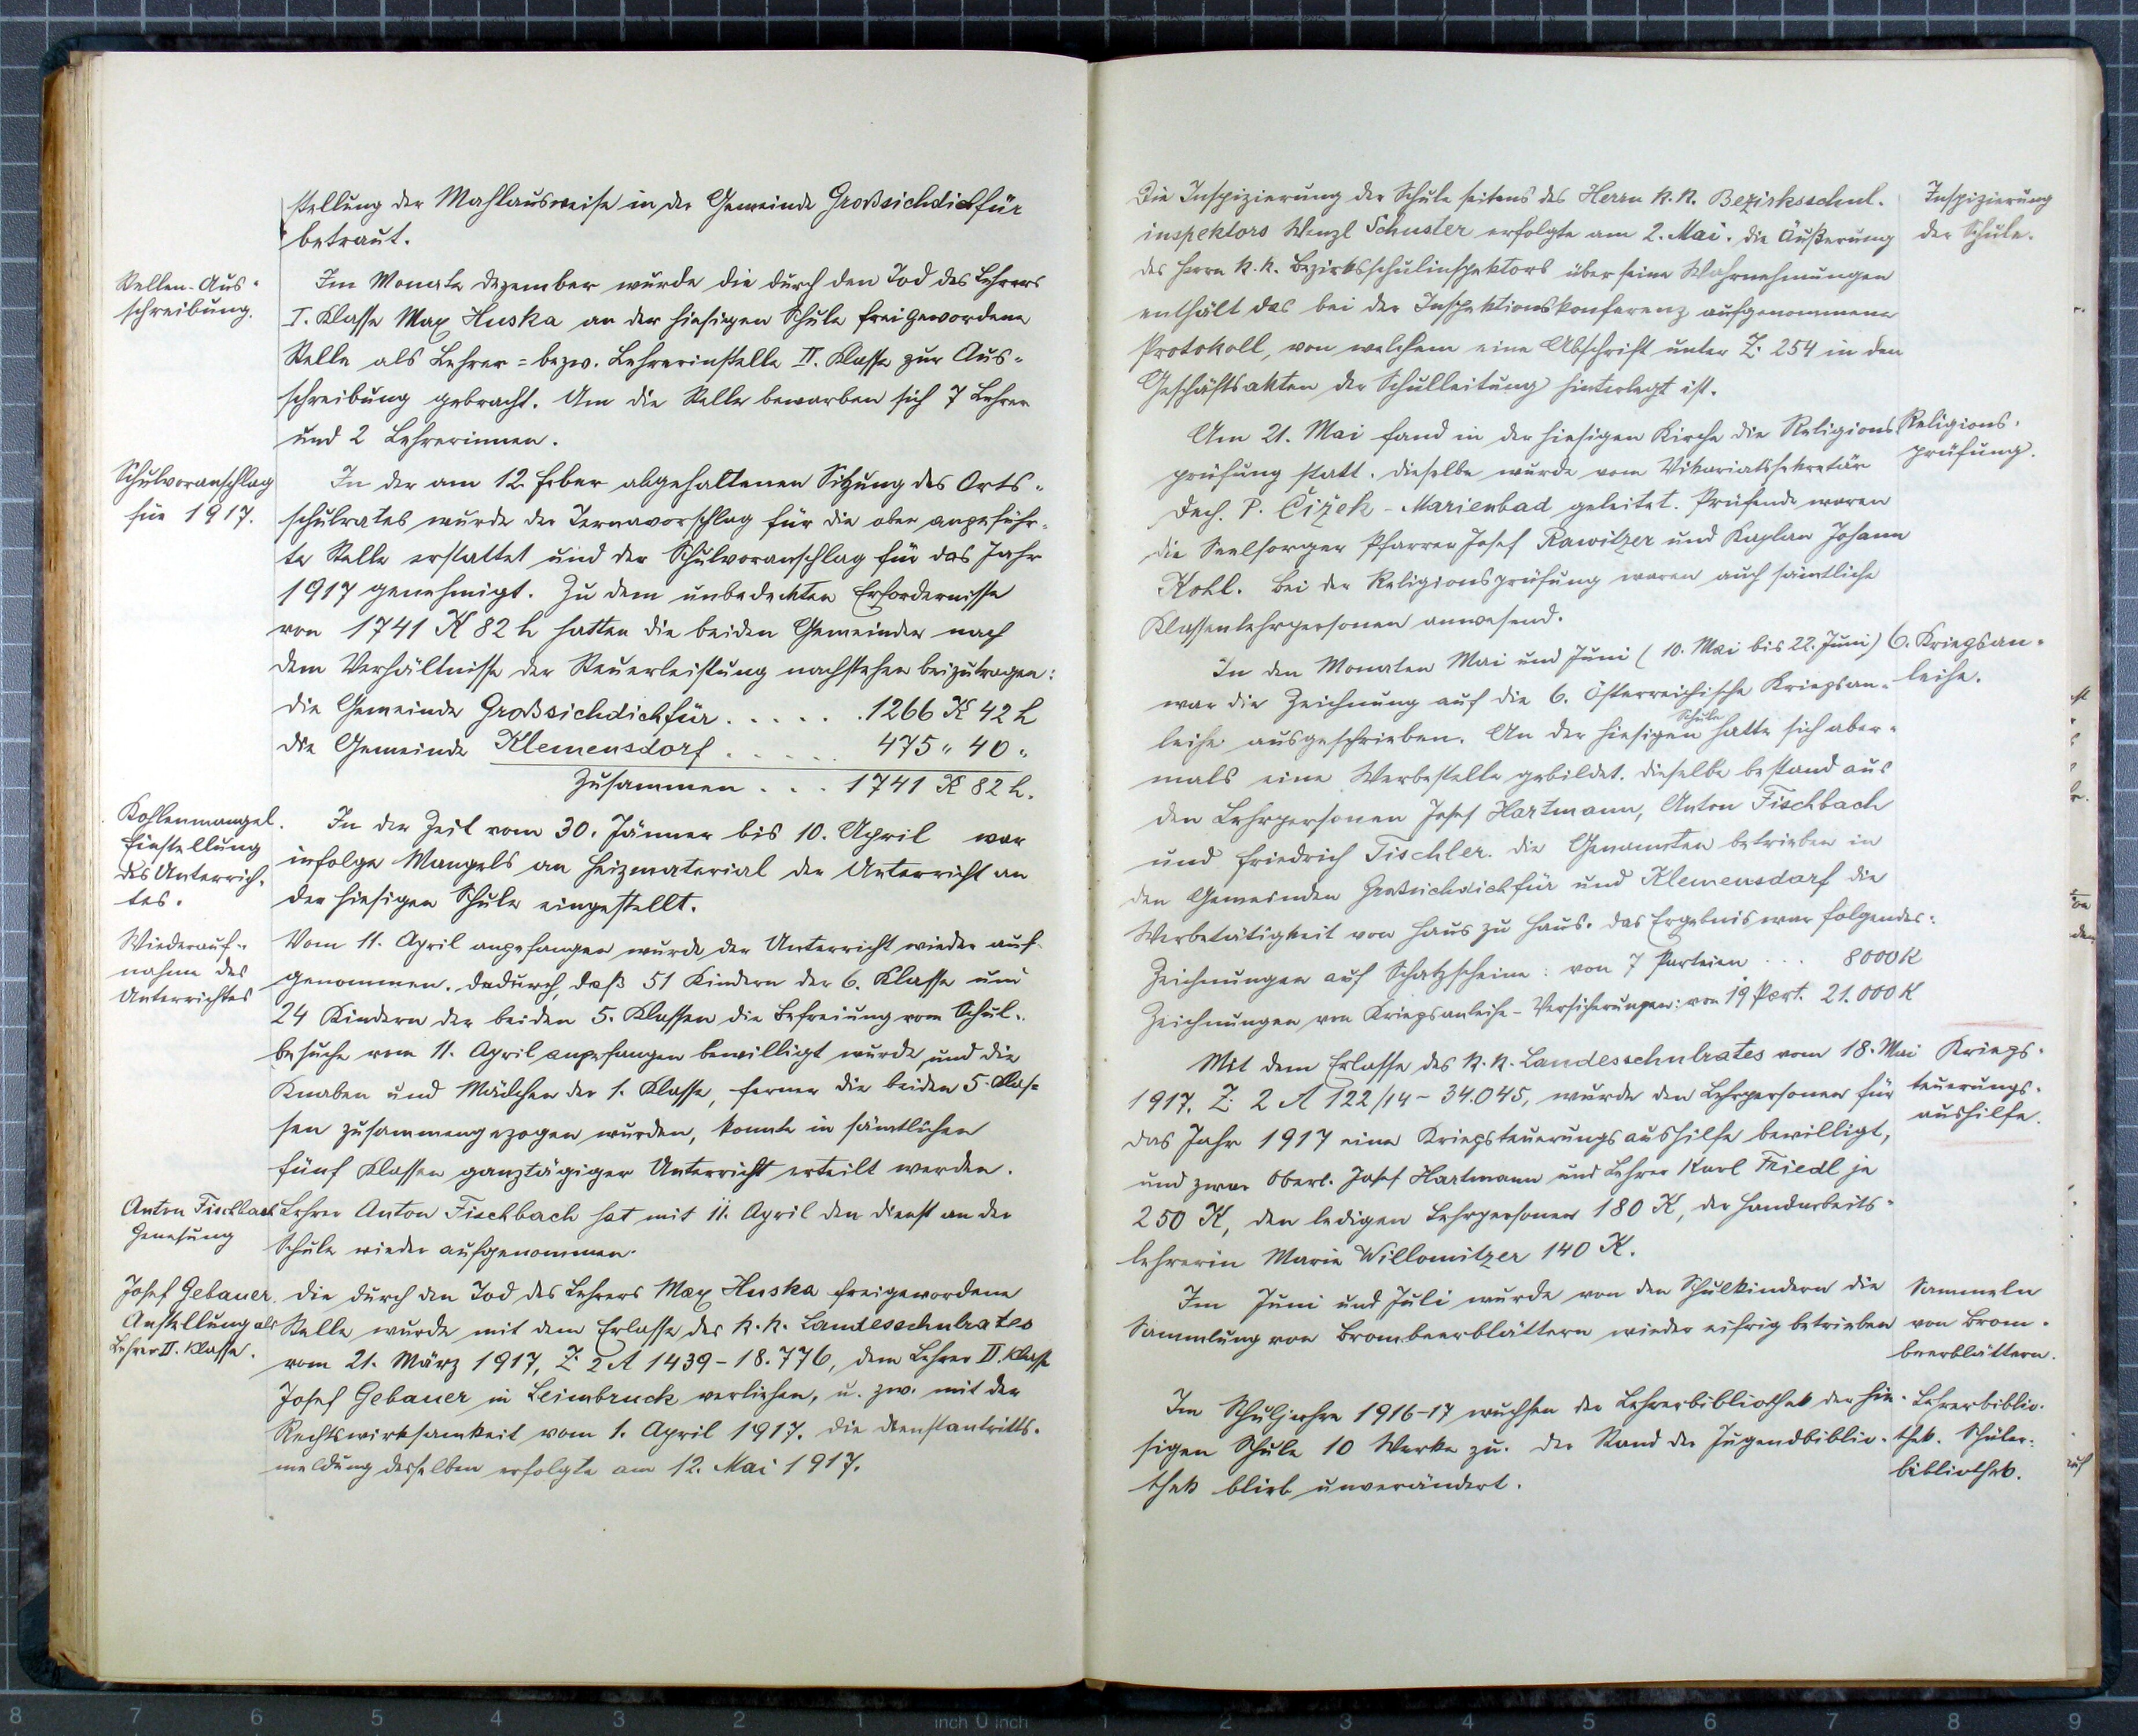 stellung der Mahlausweise in der Gemeinde Großsichdichfür
betraut.
Stellen-Aus-
schreibung.
Im Monate Dezember wurde die durch den Tod des Lehrers
I. Klasse Max Huska an der hiesigen Schule freigewordene
Stelle als Lehrer= bezw. Lehrerinstelle II. Klasse zur Aus-
schreibung gebracht. Um die Stelle bewarben sich 7 Lehrer
und 2 Lehrerinnen.
Schulvoranschlag
für 1917.
In der am 12. Feber abgehaltenen Sitzung des Orts-
schulrates wurde der Ternavorschlag für die oben angeführ-
te Stelle erstattet und der Schulvoranschlag für das Jahr
1917 genehmigt. Zu dem unbedeckten Erfordernisse
von 1741 K 82 h hatten die beiden Gemeinden nach
dem Verhältnisse der Steuerleistung nachstehen beizutragen:
die Gemeinde Großsichdichfür . . . . . . 1266 K 42 h
die Gemeinde Klemensdorf . . . . . 475 " 40 "
Zusammen . . . 1741 K 82 h.
Kohlenmangel.
Einstellung
des Unterrich-
tes.
In der Zeit vom 30. Jänner bis 10. April war
infolge Mangels an Heizmaterial der Unterricht an
der hiesigen Schule eingestellt.
Wiederauf-
nahme des
Unterrichtes
Vom 11. April angefangen wurde der Unterricht wieder auf-
genommen. Dadurch, daß 51 Kindern der 6. Klasse und
24 Kindern der beiden 5. Klassen die Befreiung vom Schul-
besuche vom 11. April angefangen bewilligt wurde, und die
Knaben und Mädchen der 1. Klasse, ferner die beiden 5. Klas-
sen zusammengezogen wurden, konnte in sämtlichen
fünf Klassen ganztägiger Unterricht erteilt werden.
Anton Fischbach
Genesung
Lehrer Anton Fischbach hat mit 11. April den Dienst an der
Schule wieder aufgenommen.
Josef Gebauer.
Anstellung als
Lehrer II. Klasse.
Die durch den Tod des Lehrers Max Huska freigewordene
Stelle wurde mit dem Erlasse des k.k. Landesschulrates
vom 21. März 1917, Z. 2 A 1439-18.776, dem Lehrer II. Klasse
Josef Gebauer in Leimbruck verliehen, u. zw. mit der
Rechtswirksamkeit vom 1. April 1917. Die Dienstantritts-
meldung desselben erfolgte am 12. Mai 1917.
Die Inspizierung der Schule seitens des Herrn k.k. Bezirksschul-
inspektors Wenzl Schuster erfolgte am 2. Mai. Die Äußerung
des Herrn k.k. Bezirksschulinspektors über seine Wahrnehmungen
enthält das bei der Inspektionskonferenz aufgenommene
Protokoll, von welchem eine Abschrift unter Z. 254 in den
Geschäftsakten der Schulleitung hinterlegt ist.
Inspizierung
der Schule.
Am 21. Mai fand in der hiesigen Kirche die Religions-
prüfung statt. Dieselbe wurde vom Vikariatssekretär
Dech. P. Čižek - Marienbad geleitet. Prüfende waren
die Seelsorger Pfarrer Josef Rawitzer und Kaplan Johann
Kohl. Bei der Religionsprüfung waren auch sämtliche
Klassenlehrpersonen anwesend.
Religions-
prüfung.
In den Monaten Mai und Juni (10. Mai bis 22. Juni)
war die Zeichnung auf die 6. Österreichische Kriegsan-
leihe ausgeschrieben. An der hiesigen Schule hatte sich aber-
mals eine Werbestelle gebildet. Dieselbe bestand aus
den Lehrpersonen Josef Hartmann, Anton Fischbach
und Friedrich Tischler. Die Genannten betrieben in
den Gemeinden Großsichdichfür und Klemensdorf die
Werbetätigkeit von Haus zu Haus. Das Ergebnis war folgendes:
Zeichnungen auf Schatzscheine: von 7 Parteien . . . 8000 K
Zeichnungen von Kriegsanleihe-Versicherungen: von 19 Part. 21.000 K
6. Kriegsan-
leihe.
Mit dem Erlasse des k.k. Landesschulrates vom 18. Mai
1917, Z. 2 A 122/14-34.045, wurde den Lehrpersonen für
das Jahr 1917 eine Kriegsteuerungsaushilfe bewilligt,
und zwar Oberl. Josef Hartmann und Lehrer Karl Friedl je
250 K, den ledigen Lehrpersonen 180 K, der Handarbeits-
lehrerin Marie Willomitzer 140 K.
Kriegs-
teuerungs-
aushilfe.
Im Juni und Juli wurde von den Schulkindern die
Sammlung von Brombeerblättern wieder eifrig betrieben
Sammeln
von Brom-
beerblättern.
Im Schuljahre 1916-17 wuchsen der Lehrerbibliothek der hie-
sigen Schule 10 Werke zu. Der Stand der Jugendbiblio-
thek blieb unverändert.
Lehrerbiblio-
thek. Schüler-
bibliothek.
8 7 6 5 4 3 2 1 inch 0 inch 1 2 3 4 5 6 7 8 9